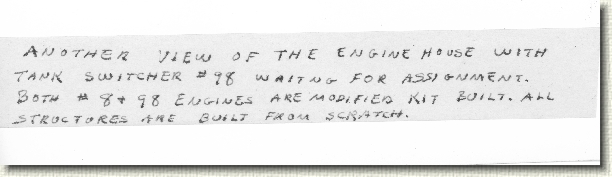 ANOTHER VIEW OF THE ENGINE HOUSE WITH
TANK SWITCHER #98 WAITNG FOR ASSIGNMENT.
BOTH #8+98 ENGINES ARE MODIFIED KIT BUILT. ALL
STRUCTURES ARE BUILT FROM SCRATCH.